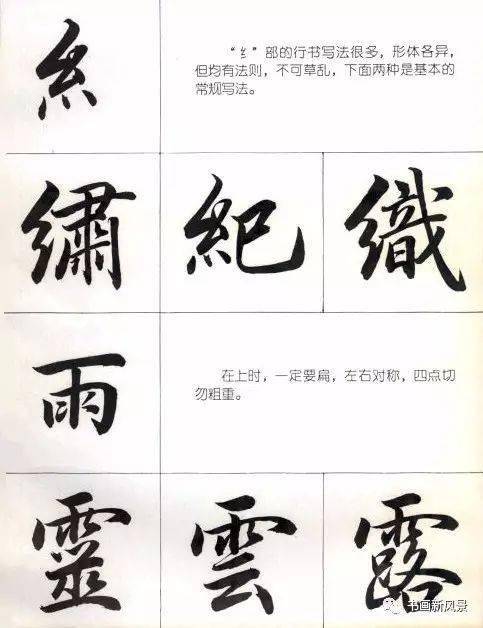 糹
“纟”部的行书写法很多，形体各异，
但均有法则，不可草乱，下面两种是基本的
常规写法。
繡 紀 織
雨
在上时，一定要扁，左右对称，四点切
勿粗重。
霊 雲 露
书画新风景